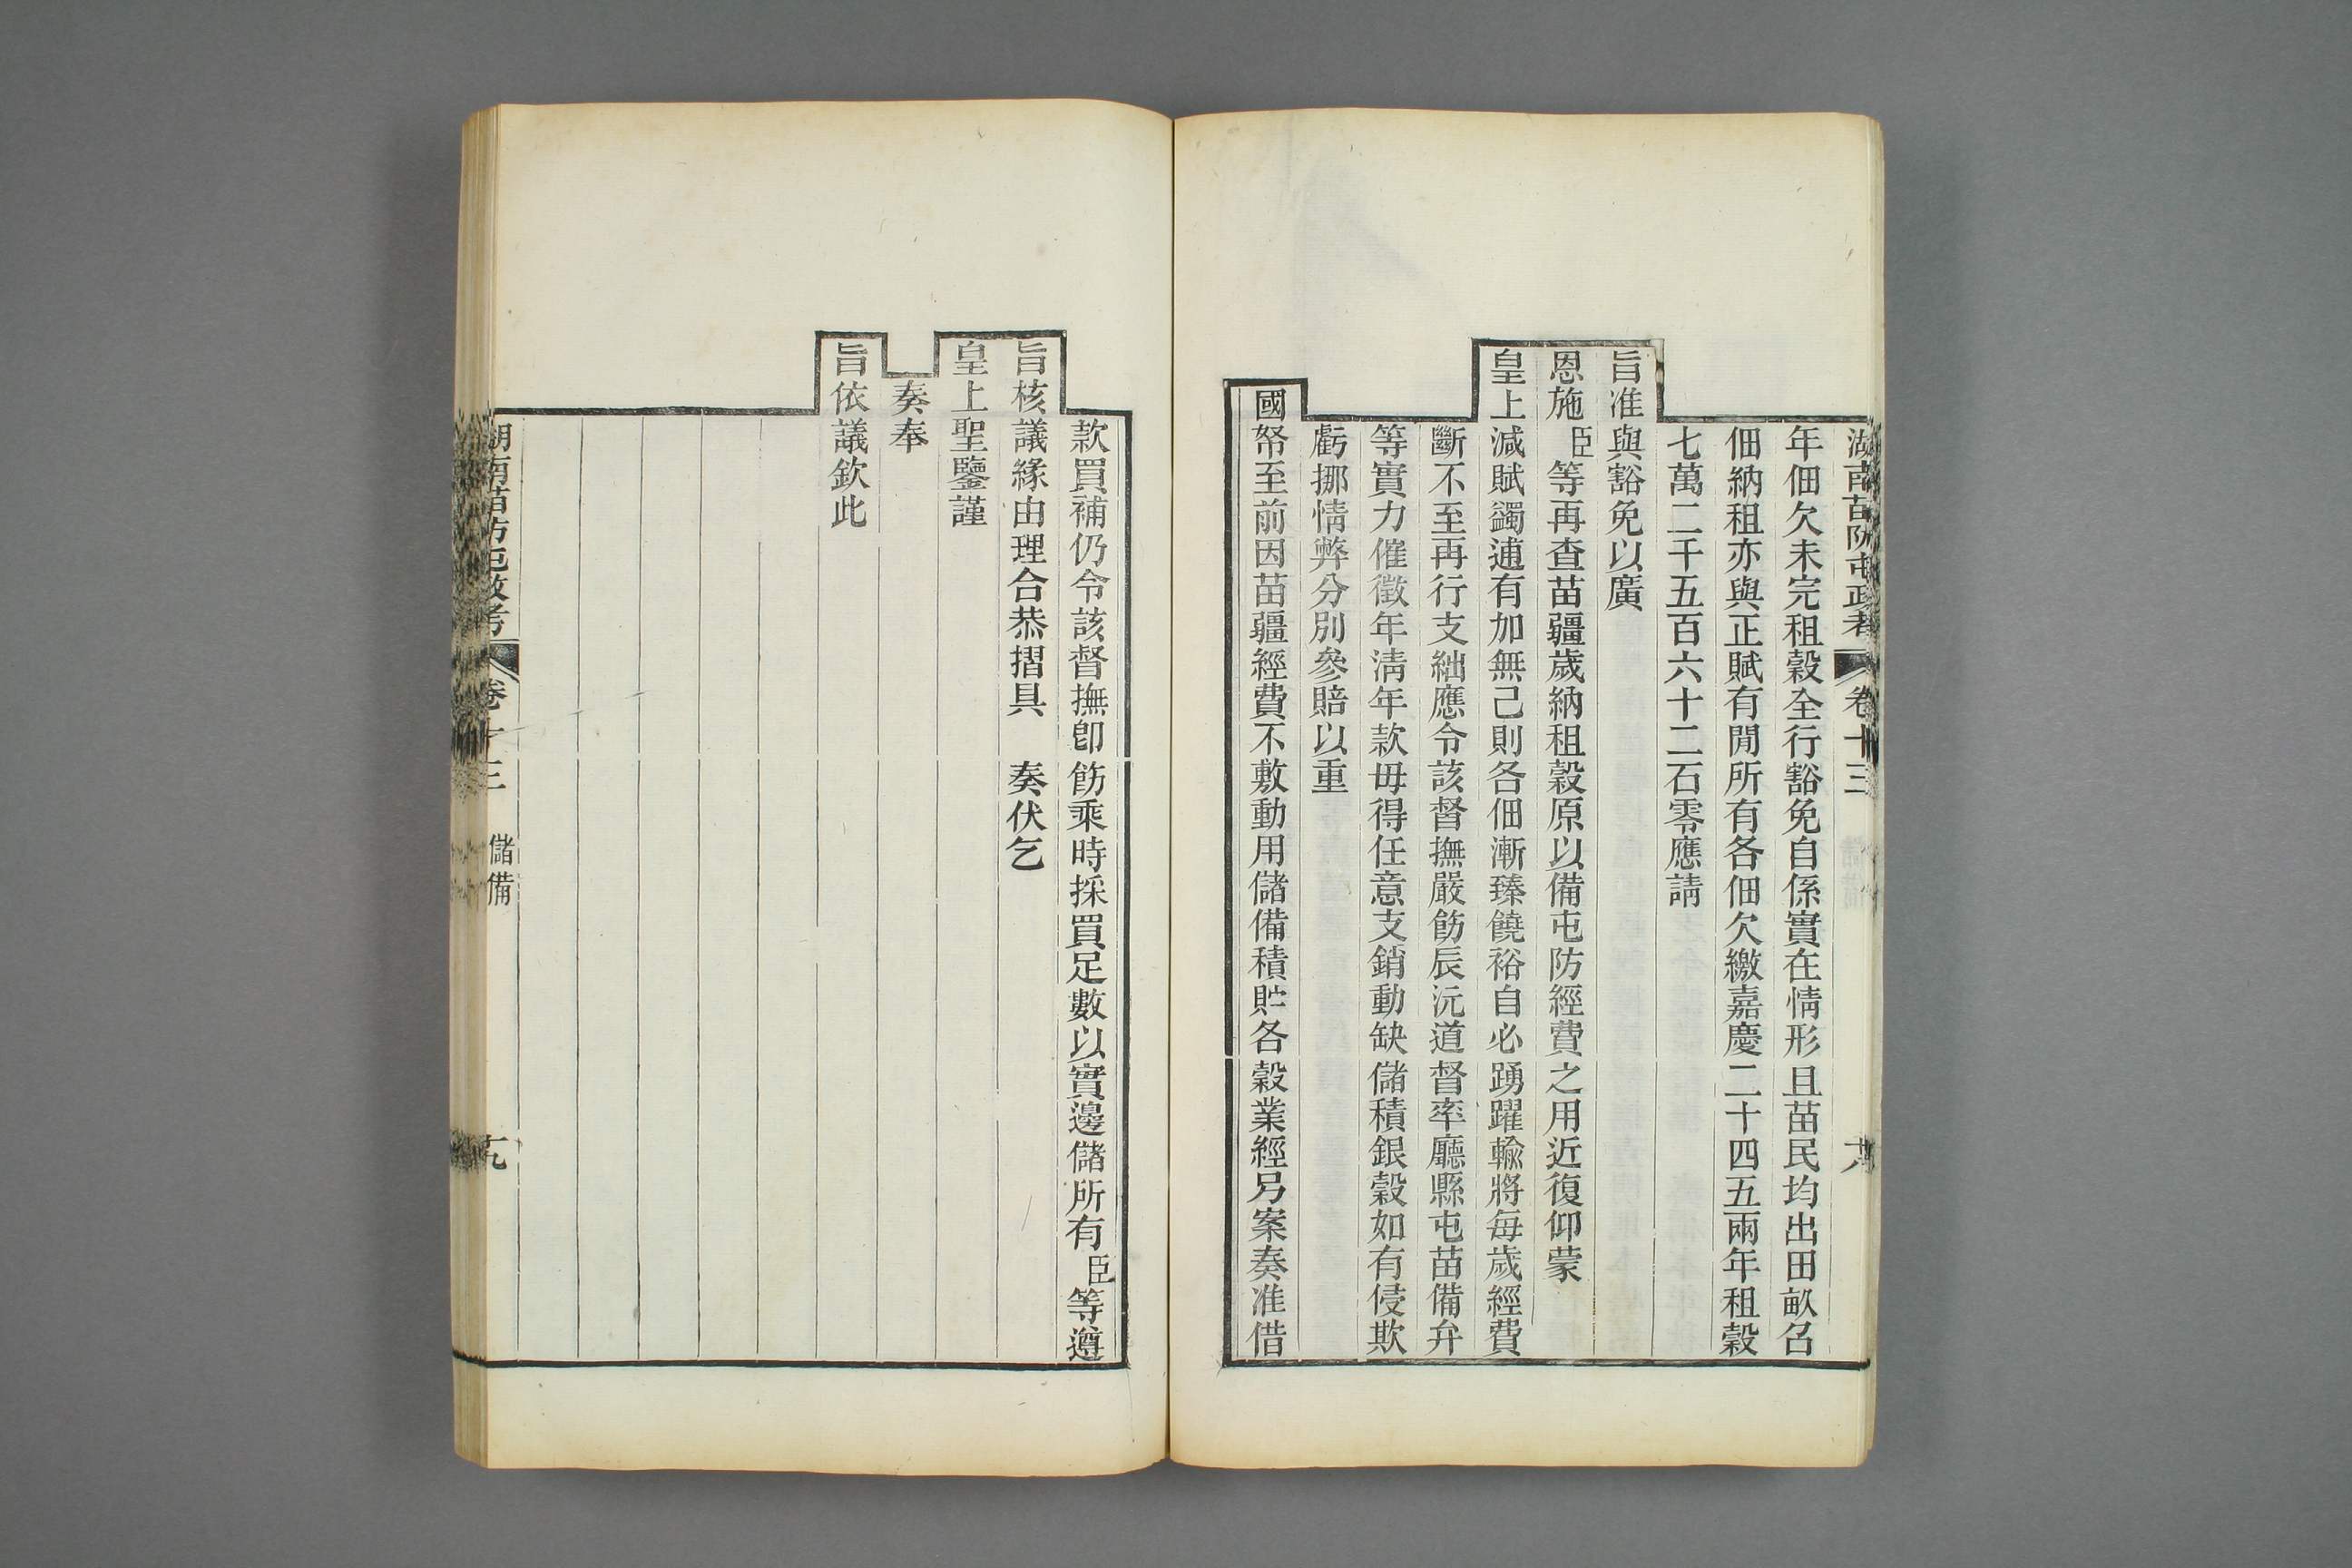 湖南苗防屯政考 卷十三 六
年佃欠未完租穀全行豁免自係實在情形且苗民均出田畝召
佃納租亦與正賦有閒所有各佃欠繳嘉慶二十四五兩年租穀
七萬二千五百六十二石零應請
旨准與豁免以廣
恩施臣等再查苗疆歲納租穀原以備屯防經費之用近復仰蒙
皇上減賦蠲逋有加無己則各佃漸臻饒裕自必踴躍輸將每歲經費
斷不至再行支絀應令該督撫嚴飭辰沅道督率廳縣屯苗備弁
等實力催徵年淸年款毋得任意支銷動缺儲積銀穀如有侵欺
虧挪情弊分別參賠以重
國帑至前因苗疆經費不敷動用儲備積貯各穀業經另案奏准借
款買補仍令該督撫卽飭乘時採買足數以實邊儲所有臣等遵
旨核議緣由理合恭摺具 奏伏乞
皇上聖鑒謹
奏奉
旨依議欽此
湖南苗防屯政考 卷十三 儲備 十九